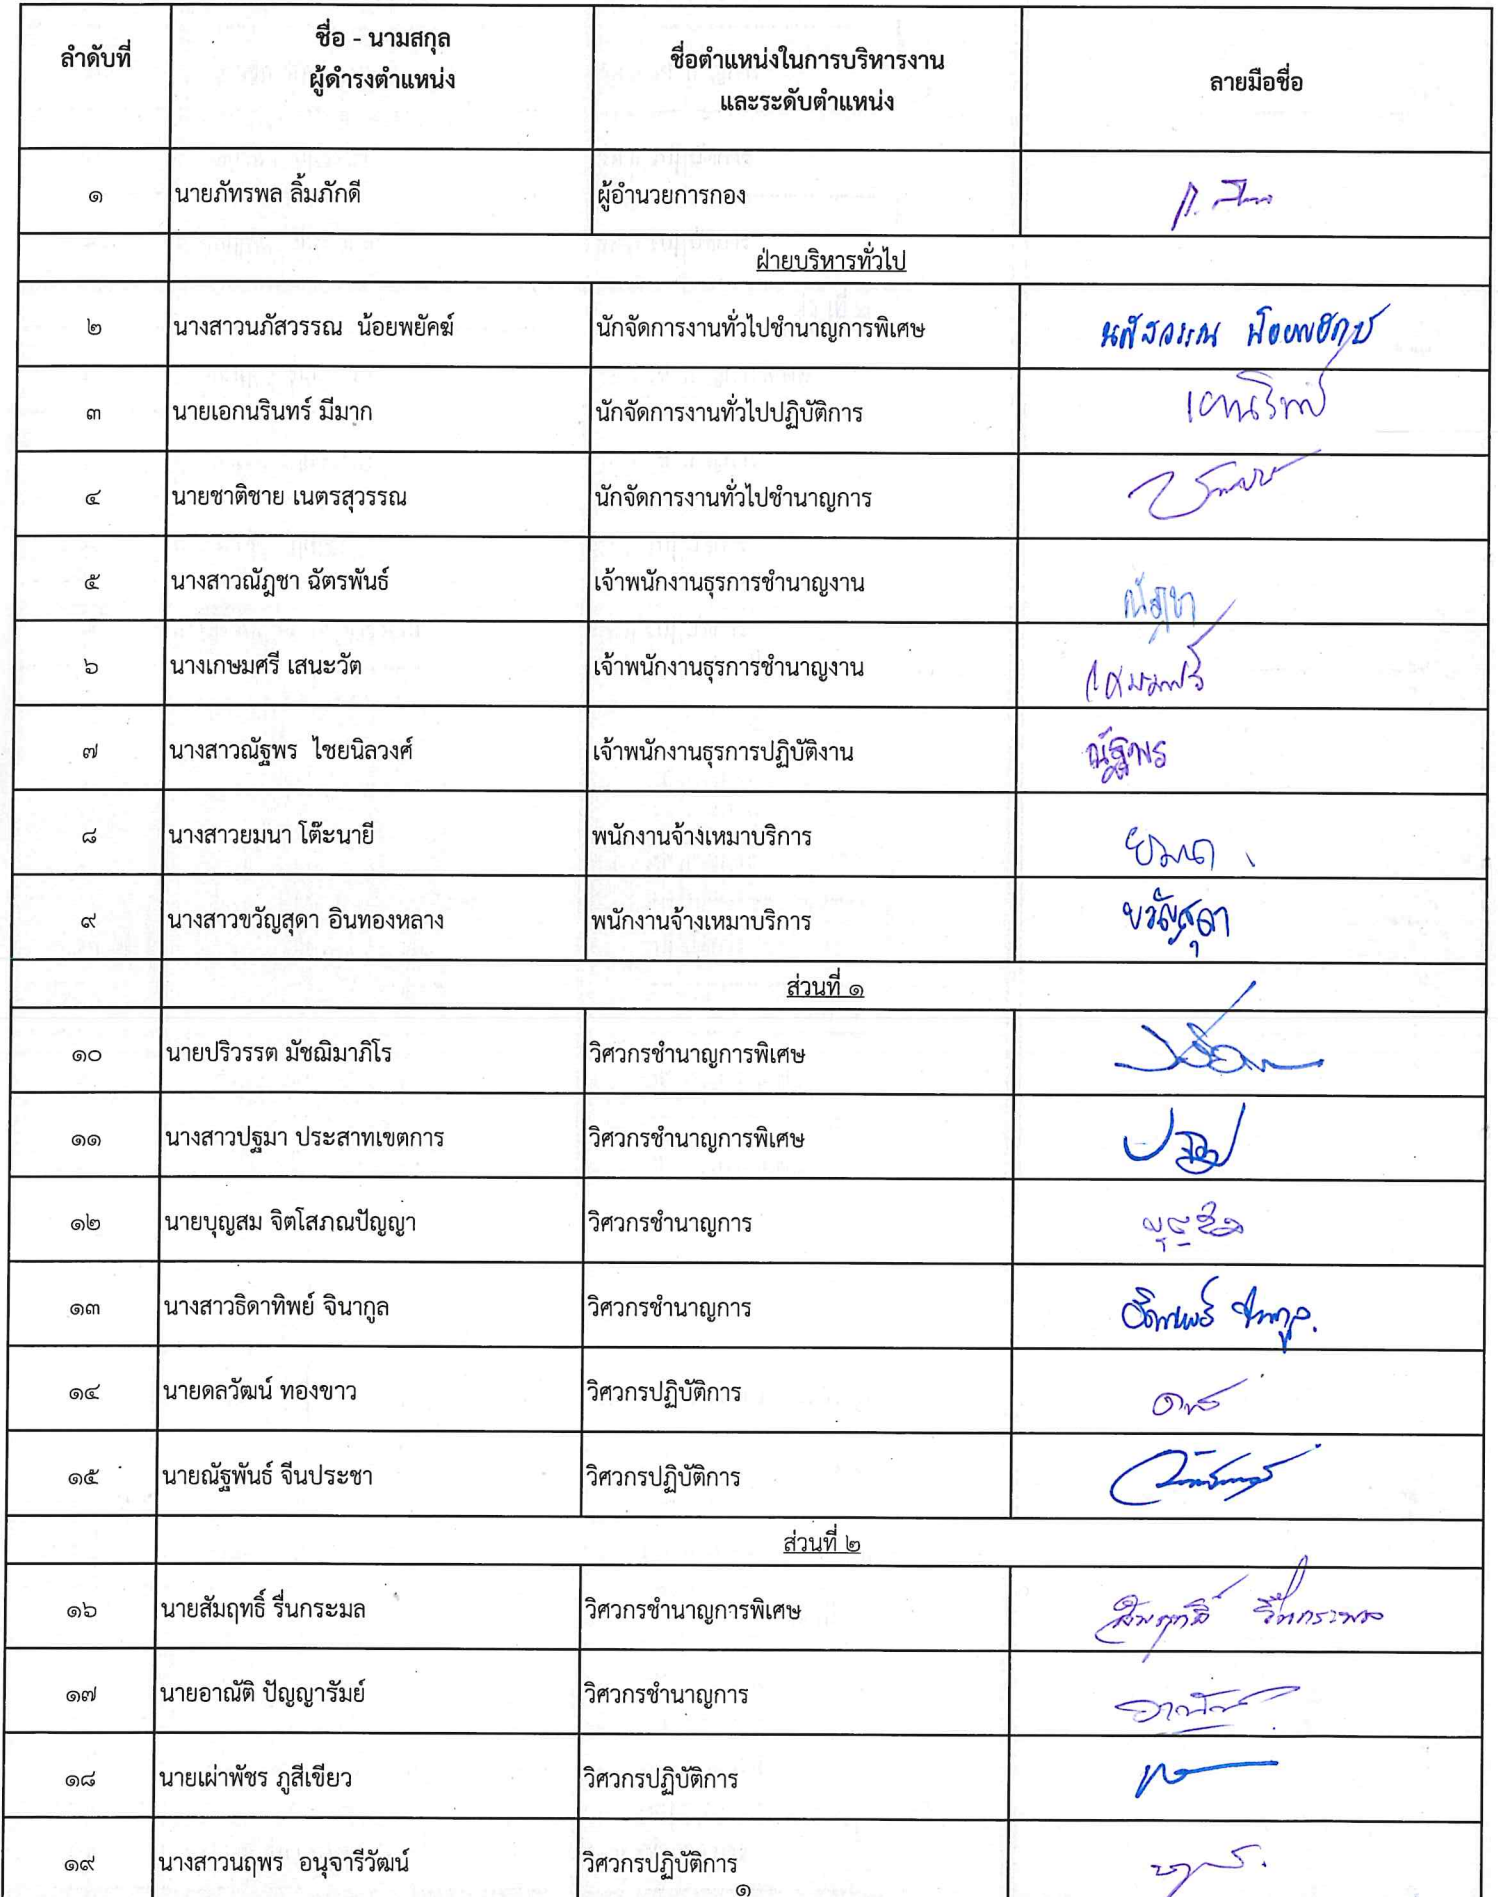 ลำดับที่
ชื่อ - นามสกุล
ผู้ดำรงตำแหน่ง
ชื่อตำแหน่งในการบริหารงาน
และระดับตำแหน่ง
ลายมือชื่อ
๑ นายภัทรพล ลิ้มภักดี ผู้อำนวยการกอง
ฝ่ายบริหารทั่วไป
๒ นางสาวนภัสวรรณ น้อยพยัคฆ์ นักจัดการงานทั่วไปชำนาญการพิเศษ นภัสวรรณ น้อยพยัคฆ์
๓ นายเอกนรินทร์ มีมาก นักจัดการงานทั่วไปปฏิบัติการ
๔ นายชาติชาย เนตรสุวรรณ นักจัดการงานทั่วไปชำนาญการ
๕ นางสาวณัฎชา ฉัตรพันธ์ เจ้าพนักงานธุรการชำนาญงาน ณัฎชา
๖ นางเกษมศรี เสนะวัต เจ้าพนักงานธุรการชำนาญงาน เกษมศรี
๗ นางสาวณัฐพร ไชยนิลวงศ์ เจ้าพนักงานธุรการปฏิบัติงาน ณัฐพร
๘ นางสาวยมนา โต๊ะนายี พนักงานจ้างเหมาบริการ ยมนา
๙ นางสาวขวัญสุดา อินทองหลาง พนักงานจ้างเหมาบริการ ขวัญสุดา
ส่วนที่ ๑
๑๐ นายปริวรรต มัชฌิมาภิโร วิศวกรชำนาญการพิเศษ
๑๑ นางสาวปฐมา ประสาทเขตการ วิศวกรชำนาญการพิเศษ
๑๒ นายบุญสม จิตโสภณปัญญา วิศวกรชำนาญการ
๑๓ นางสาวธิดาทิพย์ จินากูล วิศวกรชำนาญการ ธิดาทิพย์ จินากูล
๑๔ นายดลวัฒน์ ทองขาว วิศวกรปฏิบัติการ
๑๕ นายณัฐพันธ์ จีนประชา วิศวกรปฏิบัติการ
ส่วนที่ ๒
๑๖ นายสัมฤทธิ์ รื่นกระมล วิศวกรชำนาญการพิเศษ สัมฤทธิ์ รื่นกระมล
๑๗ นายอาณัติ ปัญญารัมย์ วิศวกรชำนาญการ อาณัติ
๑๘ นายเผ่าพัชร ภูสีเขียว วิศวกรปฏิบัติการ
๑๙ นางสาวนฤพร อนุจารีวัฒน์ วิศวกรปฏิบัติการ
๑